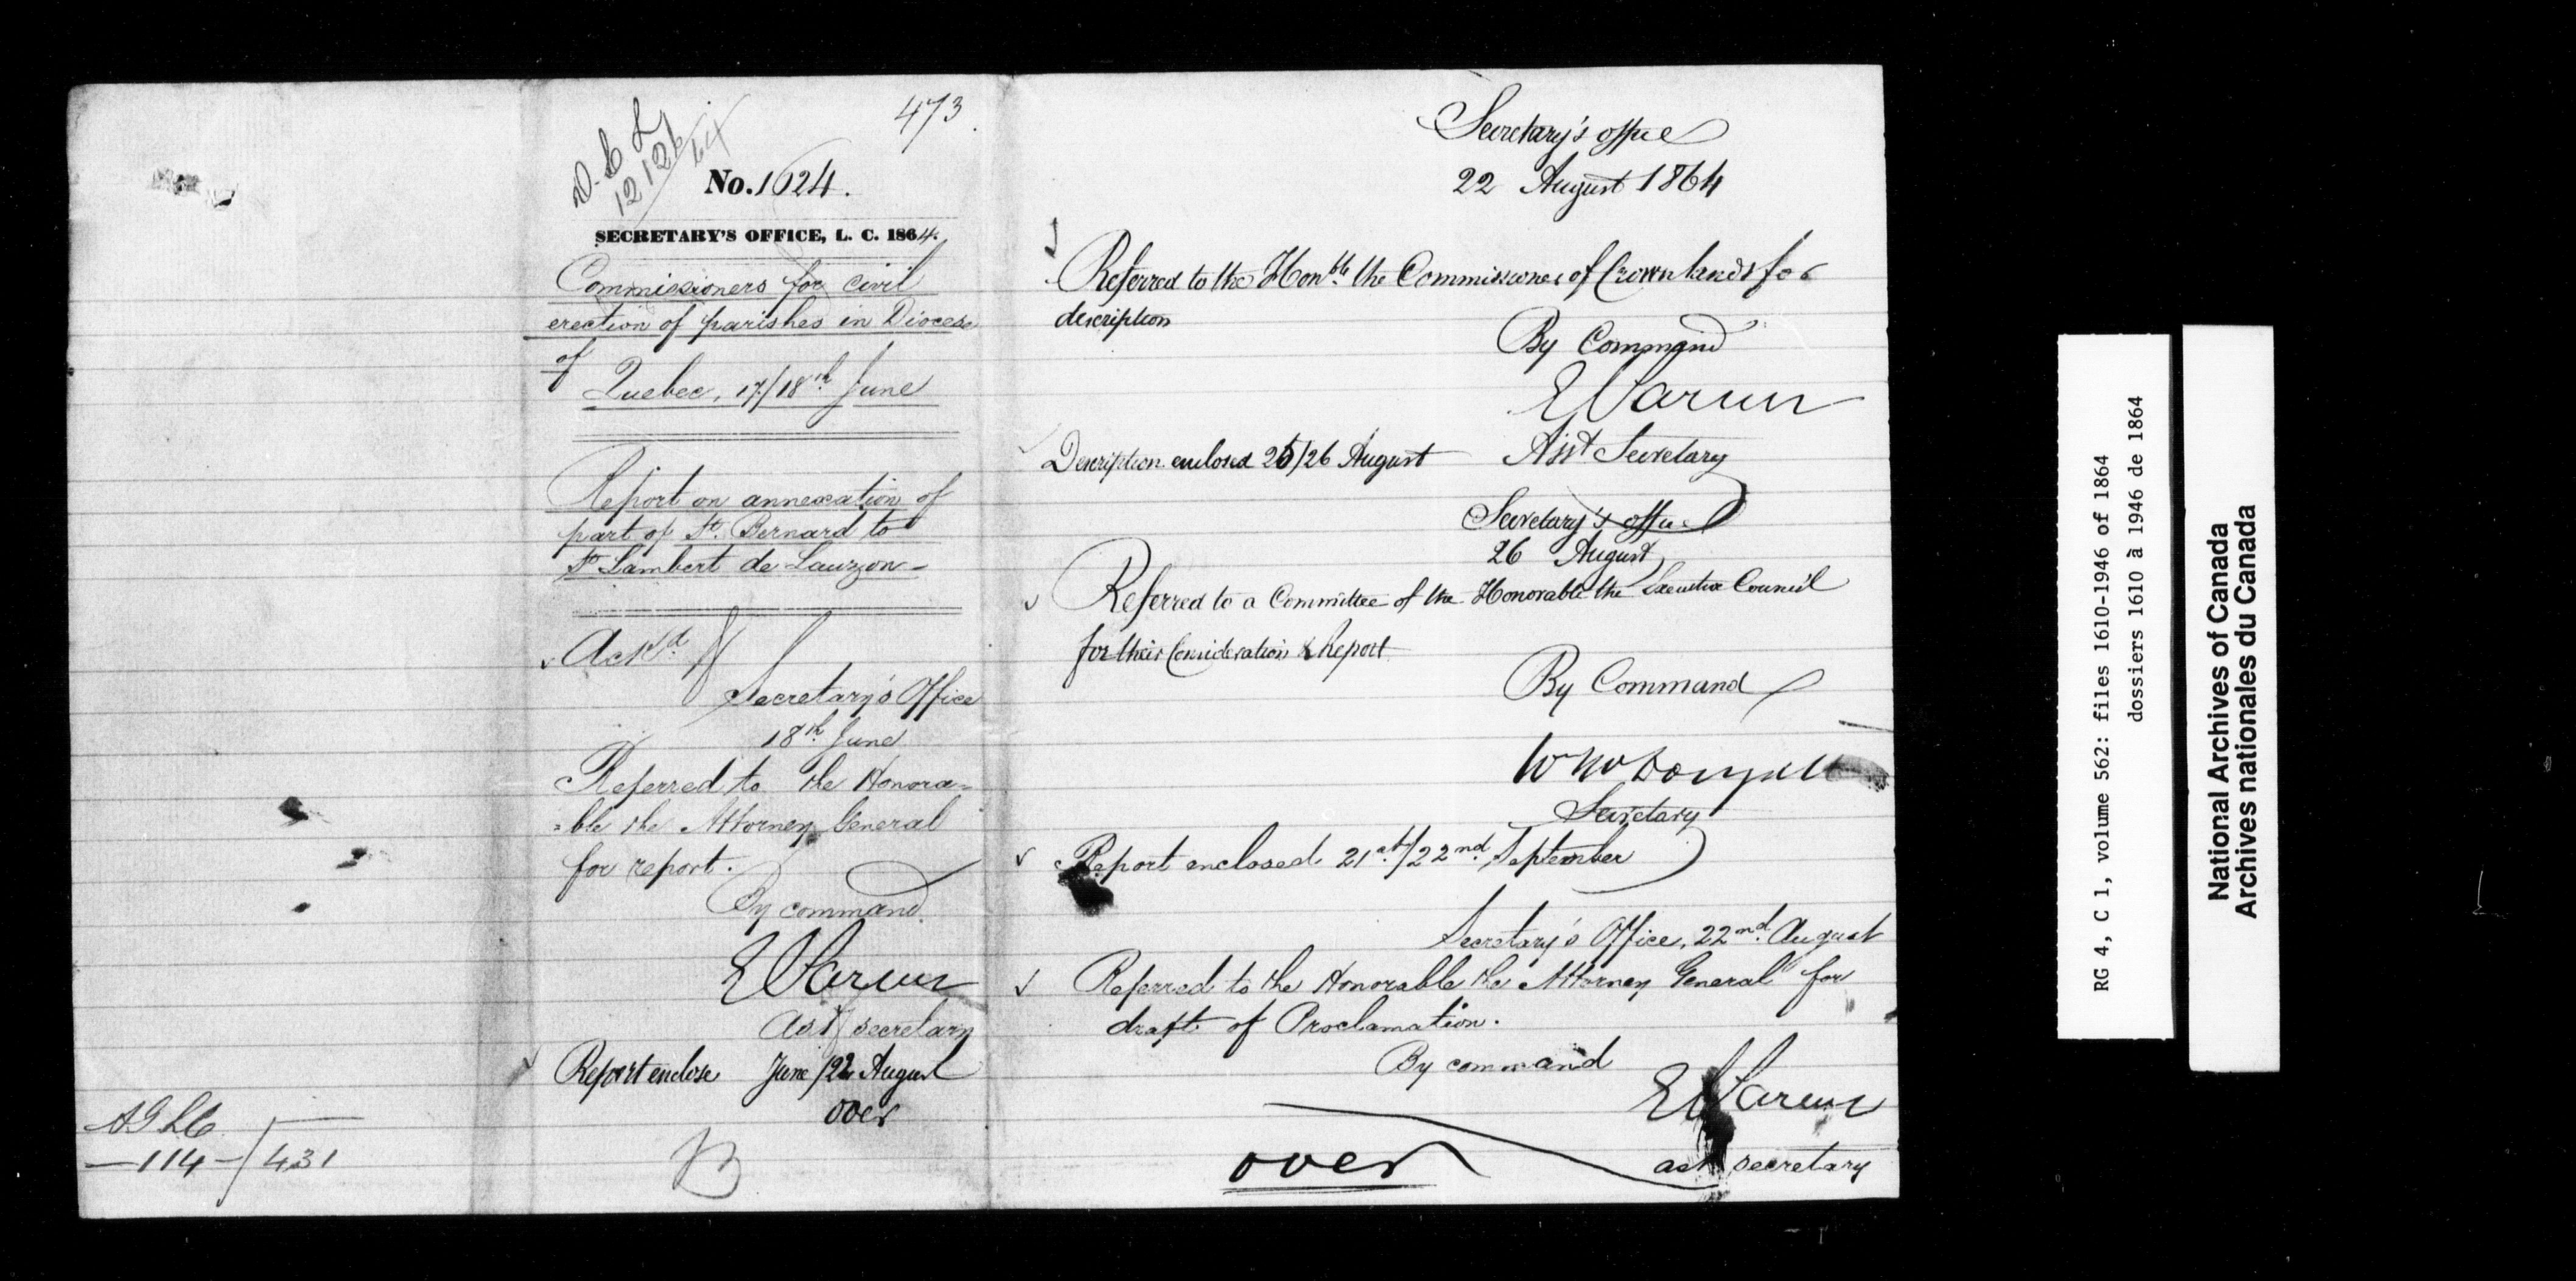 473
D. C L
12126/64
No. 1624.
SECRETARY'S OFFICE, L. C. 1864.
Commissioners for civil
erection of parishes in Diocese
of
Quebec, 17/18th June
Report on annexation of
part of St. Bernard to
St Lambert de Lauzon-
Ackd
Secretary's Office
18th June
Referred to the Honora=
=ble the Attorney General
for report.
By command
E Parent
Asst secretary
Report enclose June /22 August
over
B
AGLC
—114—/431
Secretary's office
22 August 1864
Referred to the Honble the Commissioner of Crown lands for
description
By Command
E Parent
Asst Secretary
Description enclosed 25/26 August
Secretary's office
26 August
Referred to a Committee of the Honorable the Executive Council
for their Consideration & Report
By Command
Wm McDougall
Secretary
Report enclosed 21st/22nd September
Secretary's Office, 22nd August
Referred to the Honorable the Attorney General for
draft of Proclamation.
By command
E Parent
asst secretary
over
RG 4, C 1, volume 562: files 1610-1946 of 1864
dossiers 1610 à 1946 de 1864
National Archives of Canada
Archives nationales du Canada